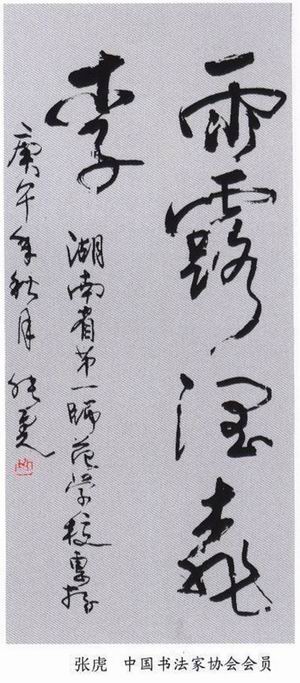 雨露润桃
李
湖南省第一师范学校惠存
庚午年秋月 张虎
张虎 中国书法家协会会员